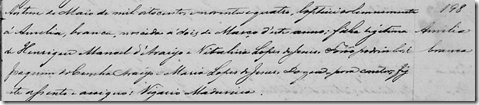 de Maio de mil oitocentos e noventa e quatro, baptisei solemnemente 198
a Amelia, branca, nascida a dois de Março d'este anno, filha legitima Amelia
de Henrique Manoel d'Araujo e Natalina Lopes de Jesus. Padrinhos branca
Joaquim da Cunha Araujo e Maria Lopes de Jesus. E para constar, fiz
este assento e assigno: Vigario Madureira.